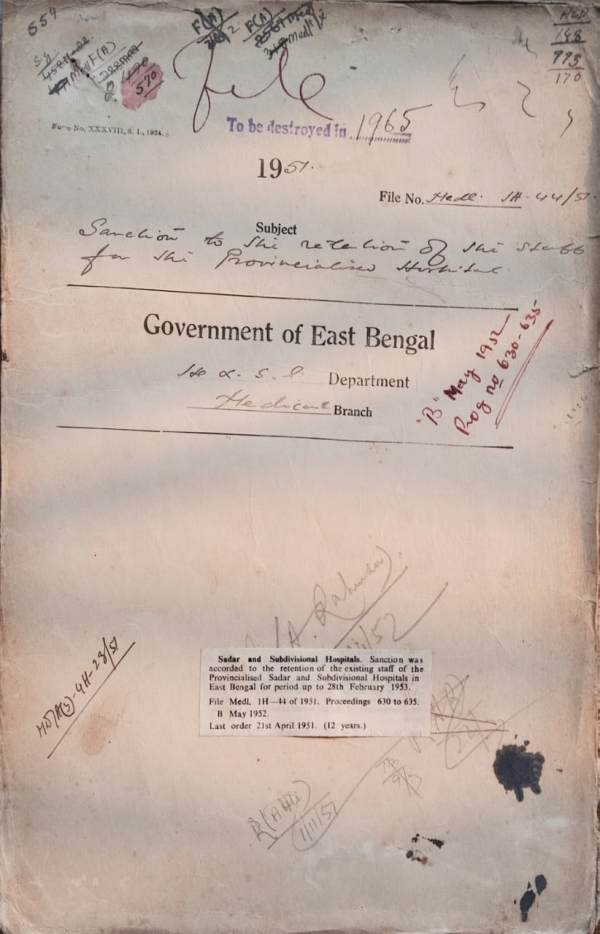 654
F(A)
F(A)
Medl F(A)
570
148
993
170
file
Form No. XXXVIII, S. I., 1924.
To be destroyed in 1965
1951.
File No. Medl. 1H-44/51.
Subject
Sanction to the retention of the staff
for the Provincialised Hospital.
Government of East Bengal
H & S. L. Department
Medical Branch
"B" May 1952
Prog no 630-635
A. Rahman
Sadar and Subdivisional Hospitals. Sanction was
accorded to the retention of the existing staff of the
Provincialised Sadar and Subdivisional Hospitals in
East Bengal for period up to 28th February 1953.
File Medl. 1H—44 of 1951. Proceedings 630 to 635.
B May 1952.
Last order 21st April 1951. (12 years.)
1/11/51